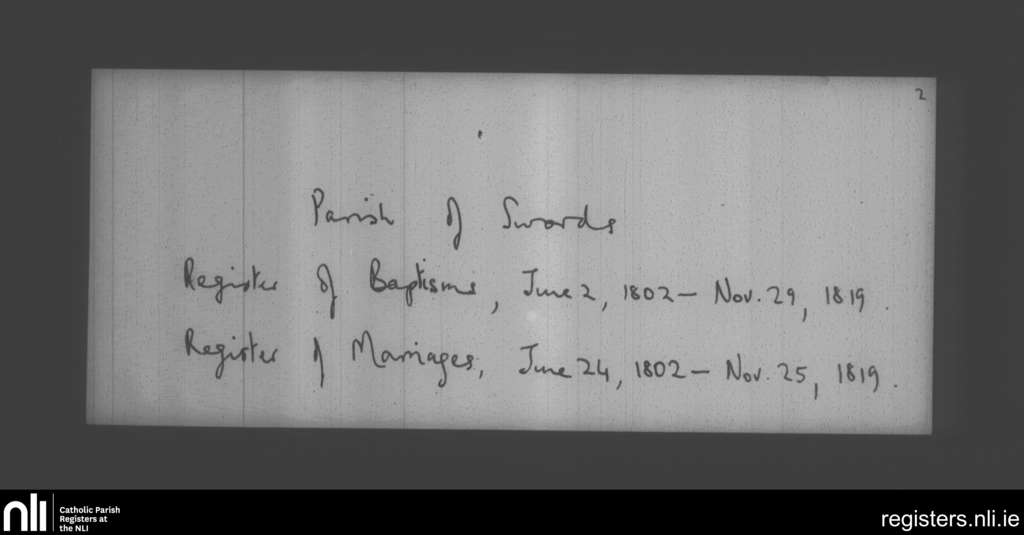 2
Parish of Swords
Register of Baptisms, June 2, 1802 – Nov. 29, 1819.
Register of Marriages, June 24, 1802 – Nov. 25, 1819.
nli
Catholic Parish
Registers at
the NLI
registers.nli.ie